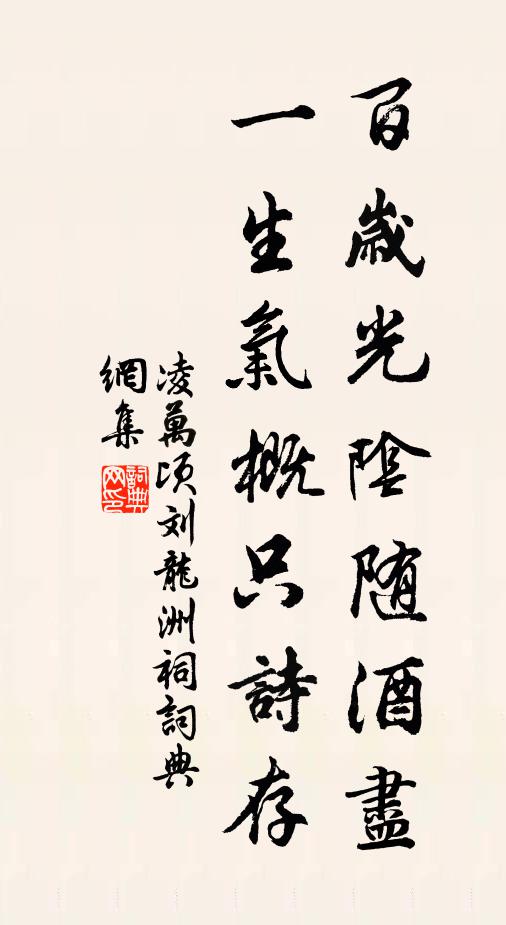 百歲光陰随酒盡
一生氣概只詩存
凌萬頃刘龍洲祠詞典
網集
詞典
网印